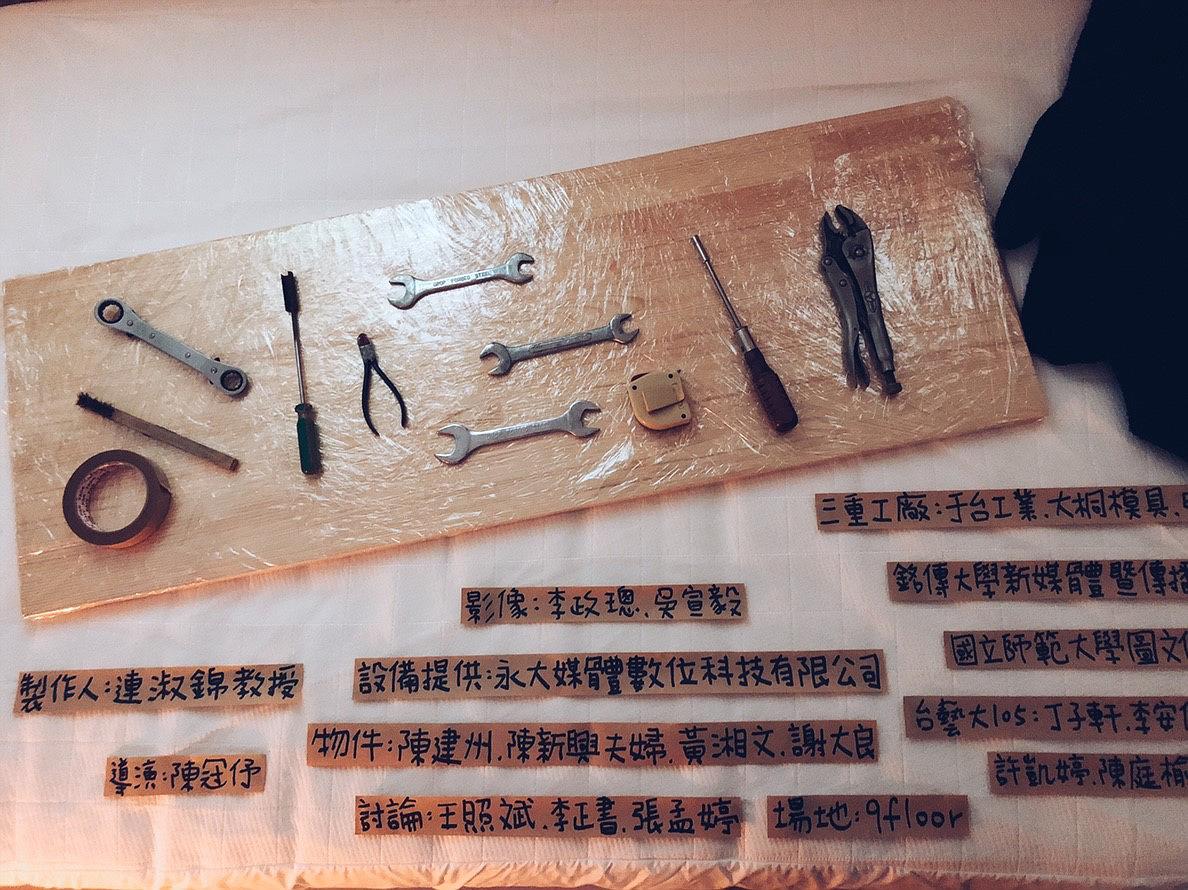 DROP FORGED STEEL
三重工廠:于台工業.大桐模具.
銘傳大學新媒體暨傳播
影像:李政璁.吳宣毅
國立師範大學圖文
製作人:連淑錦教授
設備提供:永大媒體數位科技有限公司
台藝大105:丁子軒.李安
物件:陳建州.陳新興夫婦.黃湘文.謝大良
導演:陳冠伃
許凱婷.陳庭榆
討論:王照斌.李正書.張孟婷
場地:9floor